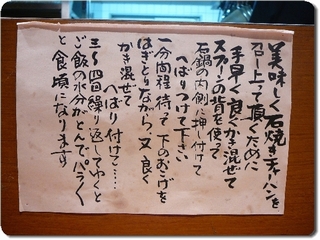 美味しく石焼きチャーハンを
召し上って頂くために
手早く良くかき混ぜて
スプーンの背を使って
石鍋の内側に押し付けて
へばりつけて下さい
一分間程待って下のおこげを
はぎとりながら、又良く
かき混ぜて
へばり付けて‥‥
三〜四回繰り返してゆくと
ご飯の水分がとんでパラパラ
と食頃になります